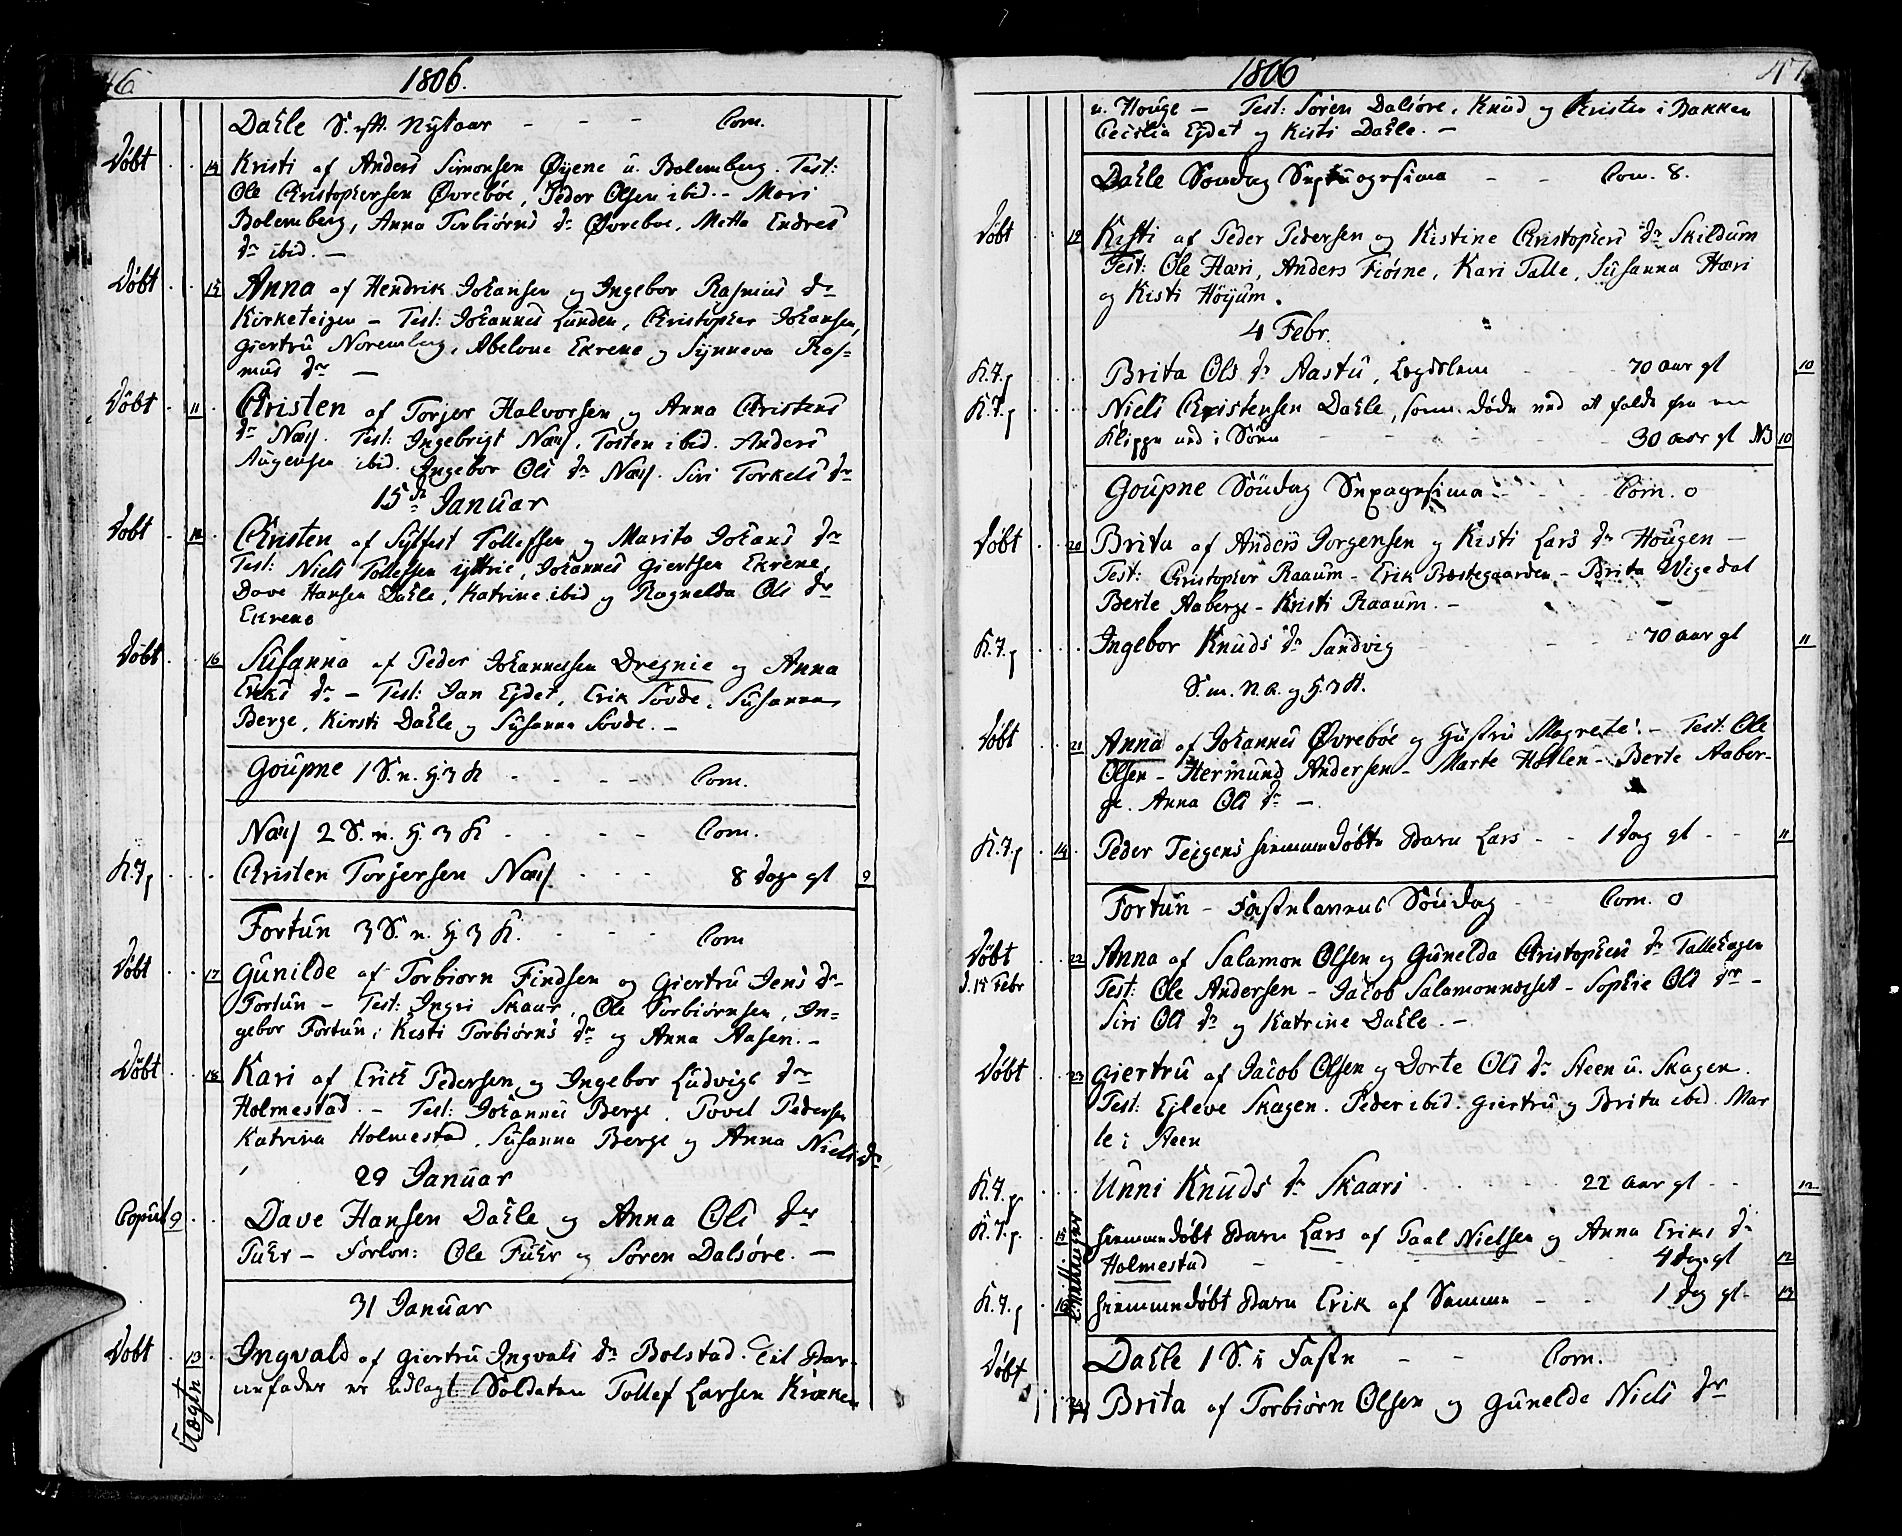 46
1806.
Dahle S. eft. Nytaar - - - Com.
Døbt 14 Kristi af Anders Simonsen Øyene u. Bolemberg. Test:
Ole Christophersen Øvrebøe, Peder Olsen ibid. - Mari
Bolemberg, Anna Torbiørns dr Øvreboe, Metta Endres
dr ibid. -
Døbt 15 Anna af Hendrik Johansen og Ingebor Rasmus dr
Kirketeigen - Test: Johannes Lunden, Christopher Johansen,
Giertru Noremberg, Abelone Ekrene og Synneva Ras=
mus dr -
Døbt 11 Christen af Torjer Halvorsen og Anna Christens
dr Næss. Test: Ingebrigt Næss, Tosten ibid. Anders
Augensen ibid. Ingebor Ols dr Næss. Siri Torkels dr
15de Januar
Døbt 12 Christen af Sylfest Tollefsen og Marita Johans dr
Test: Niels Tollefsen yttrie, Johannes Giertsen Ekrene,
Dave Hansen Dahle, Katrine ibid og Ragnelda Ols dr
Ekrene
Døbt 16 Susanna af Peder Johannessen Dregnie og Anna
Eriks dr - Test: Jan Ejdet, Erik Sovde, Susanna
Berge, Kirsti Dahle og Susanna Sovde. -
Goupne 1 S. n. H. 3 K - - - - Com.
Næss 2 S. n. H. 3 K - - - - Com.
K. J. p Christen Torjersen Næss - - - 8 dage gl 9
Fortun 3 S. n. H. 3 K. - - - Com
Døbt 17 Gunilde af Torbiorn Findsen og Giertru Jens dr
Fortun - Test: Ingri Skaar, Ole Torbiørnsen, In=
gebor Fortun, Kisti Torbiørns dr og Anna Aasen. -
Døbt 18 Kari af Erich Pedersen og Ingebor Ludvigs dr
Holmestad. - Test: Johannes Berge, Povel Pedersen
Katrina Holmestad, Susanna Berge og Anna Niels dr
29 Januar
Copul 9 Dave Hansen Dahle og Anna Ols dr
Fuhr - Forlon: Ole Fuhr og Søren Dalsøre. -
31 Januar
Døbt 13 Ingvald af Giertru Ingvals dr Bolstad. Til Bar-
nefader er udlagt Soldaten Tollef Larsen Kroken
Uægte
1806
47
u. Houge - Test: Søren Dalsøre, Knud og Christen i Bakken
Cecilia Ejdet og Kisti Dahle. -
Dahle Søndag Septuagesima - - Com. 8.
Døbt 19 Kisti af Peder Pedersen og Kistine Christophers dr Skildum
Test: Ole Hæri, Anders Fiøsne, Kari Talle, Susanna Hæri
og Kisti Høyum.
4 Febr.
K. J. p Brita Ols dr Aastu, Lægdslem - - 70 aar gl 10
K. J. p Niels Christensen Dahle, som døde ved at falde fra en
Klippe ned i Søen - - - - 30 aar gl NB 10
Goupne Søndag Sexagesima - - - Com. 0
Døbt 20 Brita af Anders Jorgensen og Kisti Lars dr Hougen -
Test: Christopher Raaum - Erik Præstegaarden - Brita Wigedal
Berte Aaberge - Kristi Raaum. -
K. J. p Ingebor Knuds dr Sandvig - - 70 aar gl 11
S. m. N. A. og H. 3 K.
Døbt 21 Anna af Johannes Øvrebøe og Gustru Magrete. - Test: Ole
Olsen - Hermund Andersen - Marte Hollen - Berte Aaber-
ge. Anna Ols dr -.
K. J. p 14 Peder Teigens hiemmedøbte Barn Lars - - 1 dag gl - - 11
Fortun - Fastelavens Søndag - Com. 0
Døbt 22 Anna af Salamon Olsen og Gunelda Christophers dr Tallehagen
d. 15 Febr Test: Ole Andersen - Jacob Salamonnæset - Sophie Ols dr -
Siri Ols dr og Katrine Dahle. -
Døbt 23 Giertru af Jacob Olsen og Dorte Ols dr Steen u. Skagen.
Test: Ejleve Skagen. Peder ibid. Giertru og Brita ibid. Mar
te i Steen
K. J. p Unni Knuds dr Skaari - - - 22 aar gl - - 12
K. J. p. 15 hiemmedøbt Barn Lars af Paal Nielsen og Anna Eriks dr
Holmestad - - - - 4 dage gl 12
K. J. p 16 hiemmedøbt Barn Erik af Samme - - 1 dag gl - 13
Dahle 1 S. i Faste - - Com.
Døbt 24 Brita af Torbiørn Olsen og Gunelde Niels dr